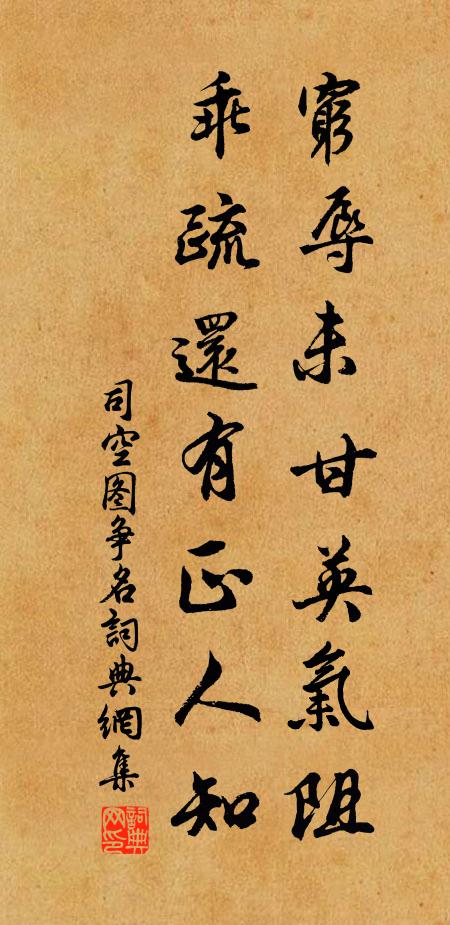 窮辱未甘英氣阻
乖疏還有正人知
司空图争名詞典網集
詞典網印